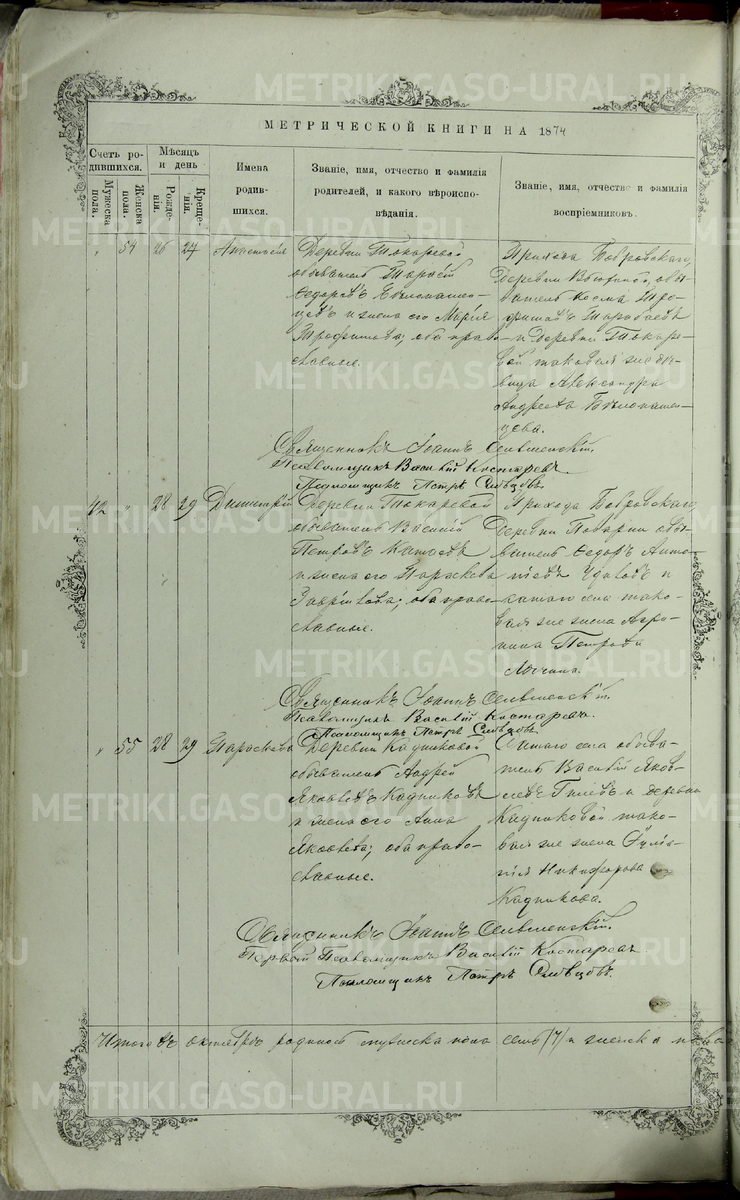 МЕТРИЧЕСКОЙ КНИГИ НА 1874
Счетъ ро-
дившихся.
Мужеска
пола.
Женска
пола.
Мѣсяцъ
и день
Рожде-
нія.
Креще-
нія.
Имена
родив-
шихся.
Званіе, имя, отчество и фамилія
родителей, и какого вѣроиспо-
вѣданія.
Званіе, имя, отчество и фамилія
воспріемниковъ.
„ 54 26 27 Анастасія
Деревни Токаревой
обыватель Тарасій
Ѳедоровъ Бѣлопаше-
цевъ и жена его Марія
Трофимова; оба право-
славные.
Прихода Бобровскаго
Деревни обы-
ватель Косма Тро-
фимовъ
и Деревни Токаре-
вой таковая же дѣ-
вица Александра
Андреева Бѣлопаше-
цева.
Священникъ Іоаннъ Селивменскій.
Псаломщикъ Василій Костаревъ.
Псаломщикъ Петръ Сивцовъ.
42 „ 28 29 Димитрій
Деревни Токаревой
обыватель Василій
Петровъ
и жена его Параскева
Гавріилова; оба право-
славные.
Прихода Бобровскаго
Деревни обы-
ватель Ѳедоръ
и
сего села тако-
вая же жена Агри-
пина Петрова
Священникъ Іоаннъ Селивменскій.
Псаломщикъ Василій Костаревъ.
Псаломщикъ Петръ Сивцовъ.
„ 55 28 29 Параскева
Деревни Кадниковой
обыватель Андрей
Яковлевъ Кадниковъ
и жена его Анна
Яковлева; оба право-
славные.
Сего села обыва-
тель Василій Яков-
левъ и деревни
Кадниковой тако-
вая же жена
Никифорова
Кадникова.
Священникъ Іоаннъ Селивменскій.
Первый Псаломщикъ Василій Костаревъ
Псаломщикъ Петръ Сивцовъ.
Итого въ октябрѣ родилось мужеска пола семь (7) и женска пола
METRIKI.GASO-URAL.RU